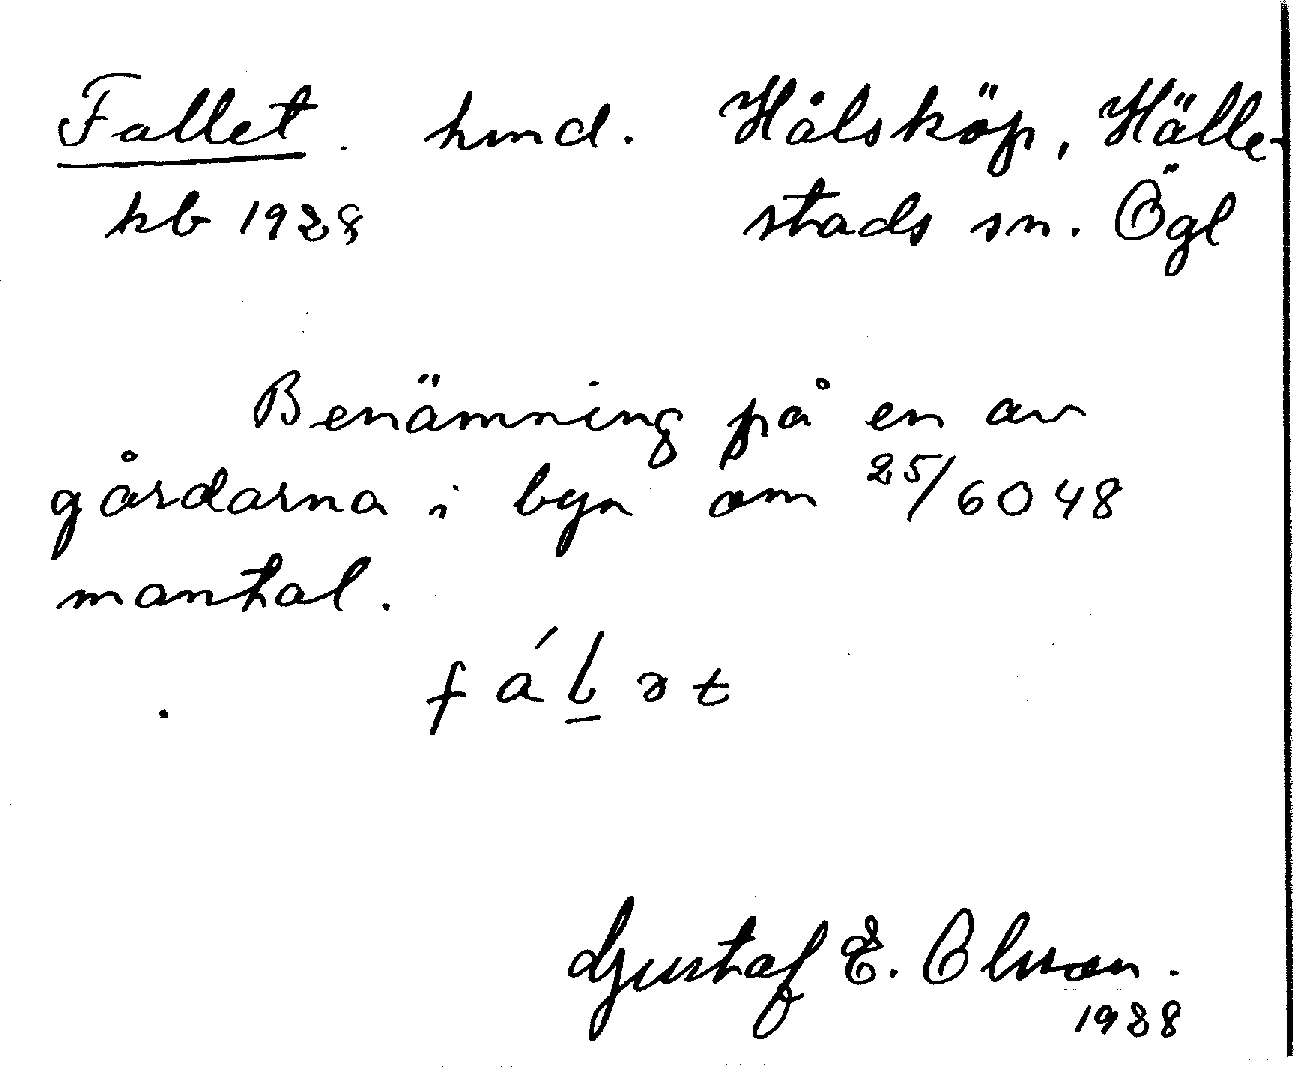 Fallet. hmd. Hålsköp, Hälle-
kb 1938 stads sn. Ögl
Benämning på en av
gårdarna i byn om 25/6048
mantal.
fál̲ət
Gustaf E. Olsson.
1938